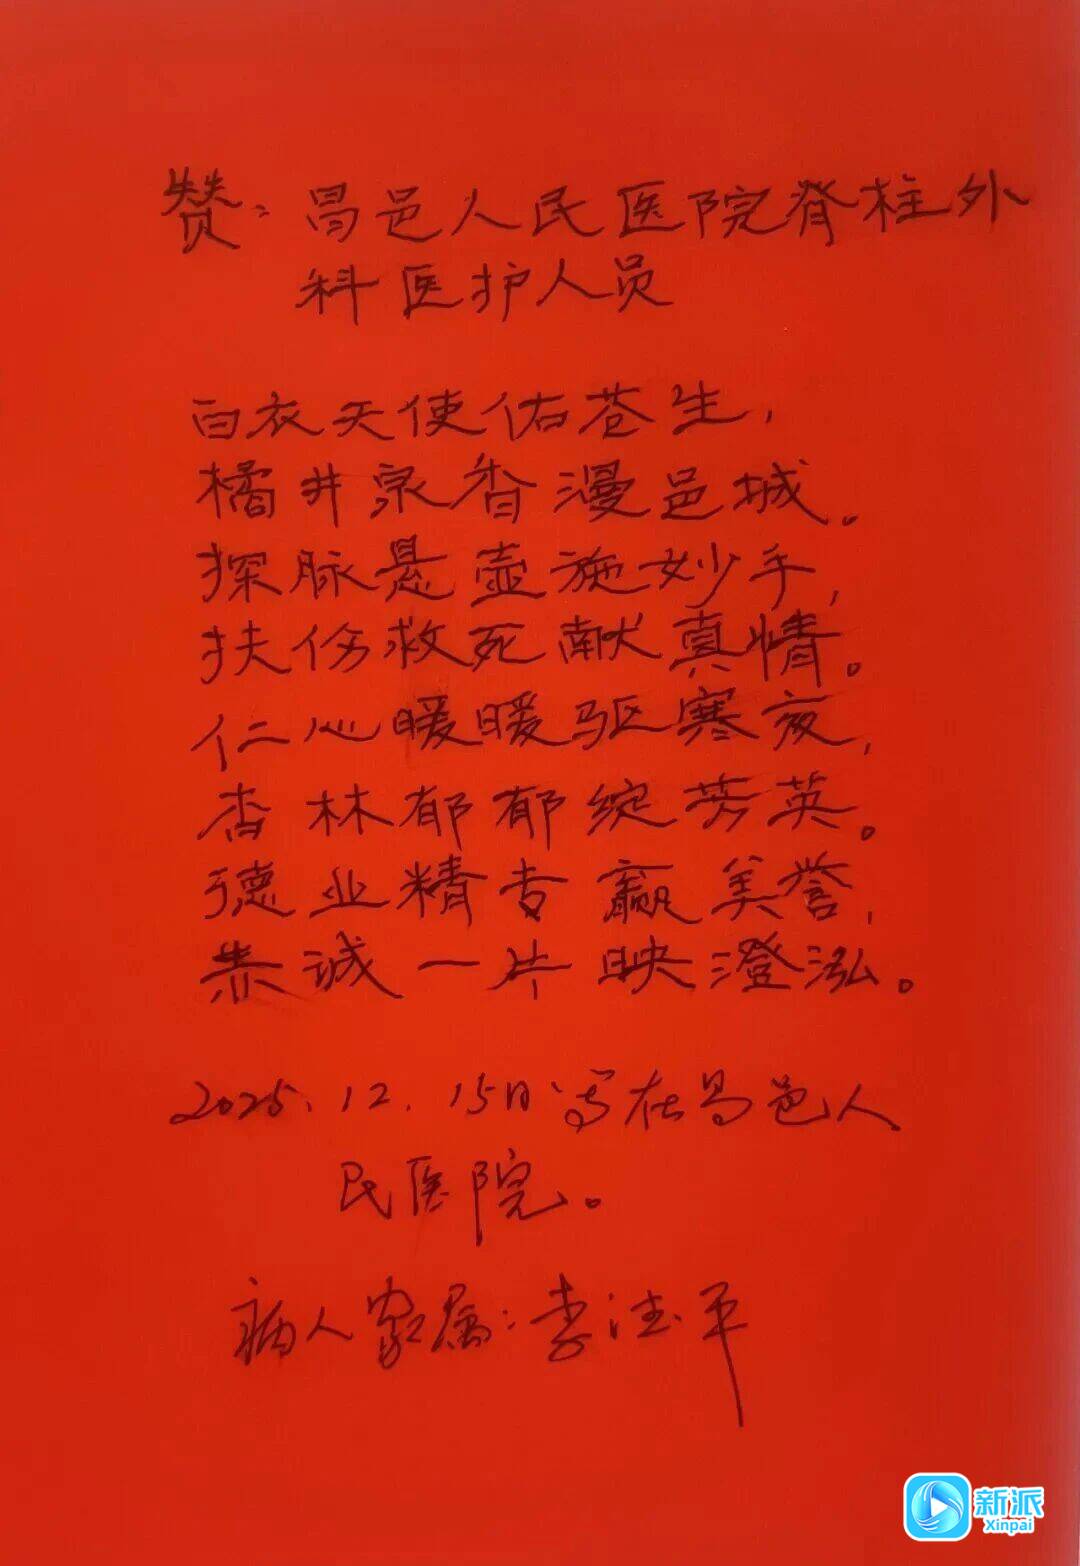 赞：昌邑人民医院脊柱外
科医护人员
白衣天使佑苍生，
橘井泉香漫邑城。
探脉悬壶施妙手，
扶伤救死献真情。
仁心暖暖驱寒夜，
杏林郁郁绽芳英。
德业精专赢美誉，
赤诚一片映澄泓。
2025.12.15日写在昌邑人
民医院。
病人家属：李法平
新派
Xinpai